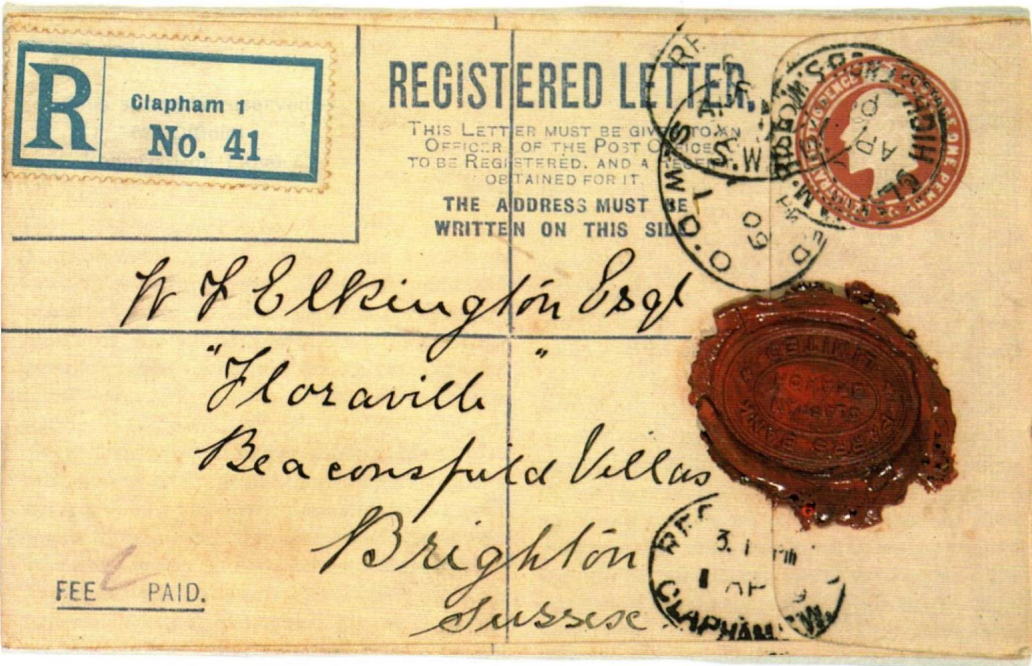 R
Clapham 1
No. 41
REGISTERED LETTER.
THIS LETTER MUST BE GIVEN TO AN
OFFICER OF THE POST OFFICE
TO BE REGISTERED, AND A RECEIPT
OBTAINED FOR IT.
THE ADDRESS MUST BE
WRITTEN ON THIS SIDE
W F Elkington Esqr
"Floraville"
Beaconsfield Villas
Brighton
Sussex
FEE PAID.
CLAPHAM S.W.